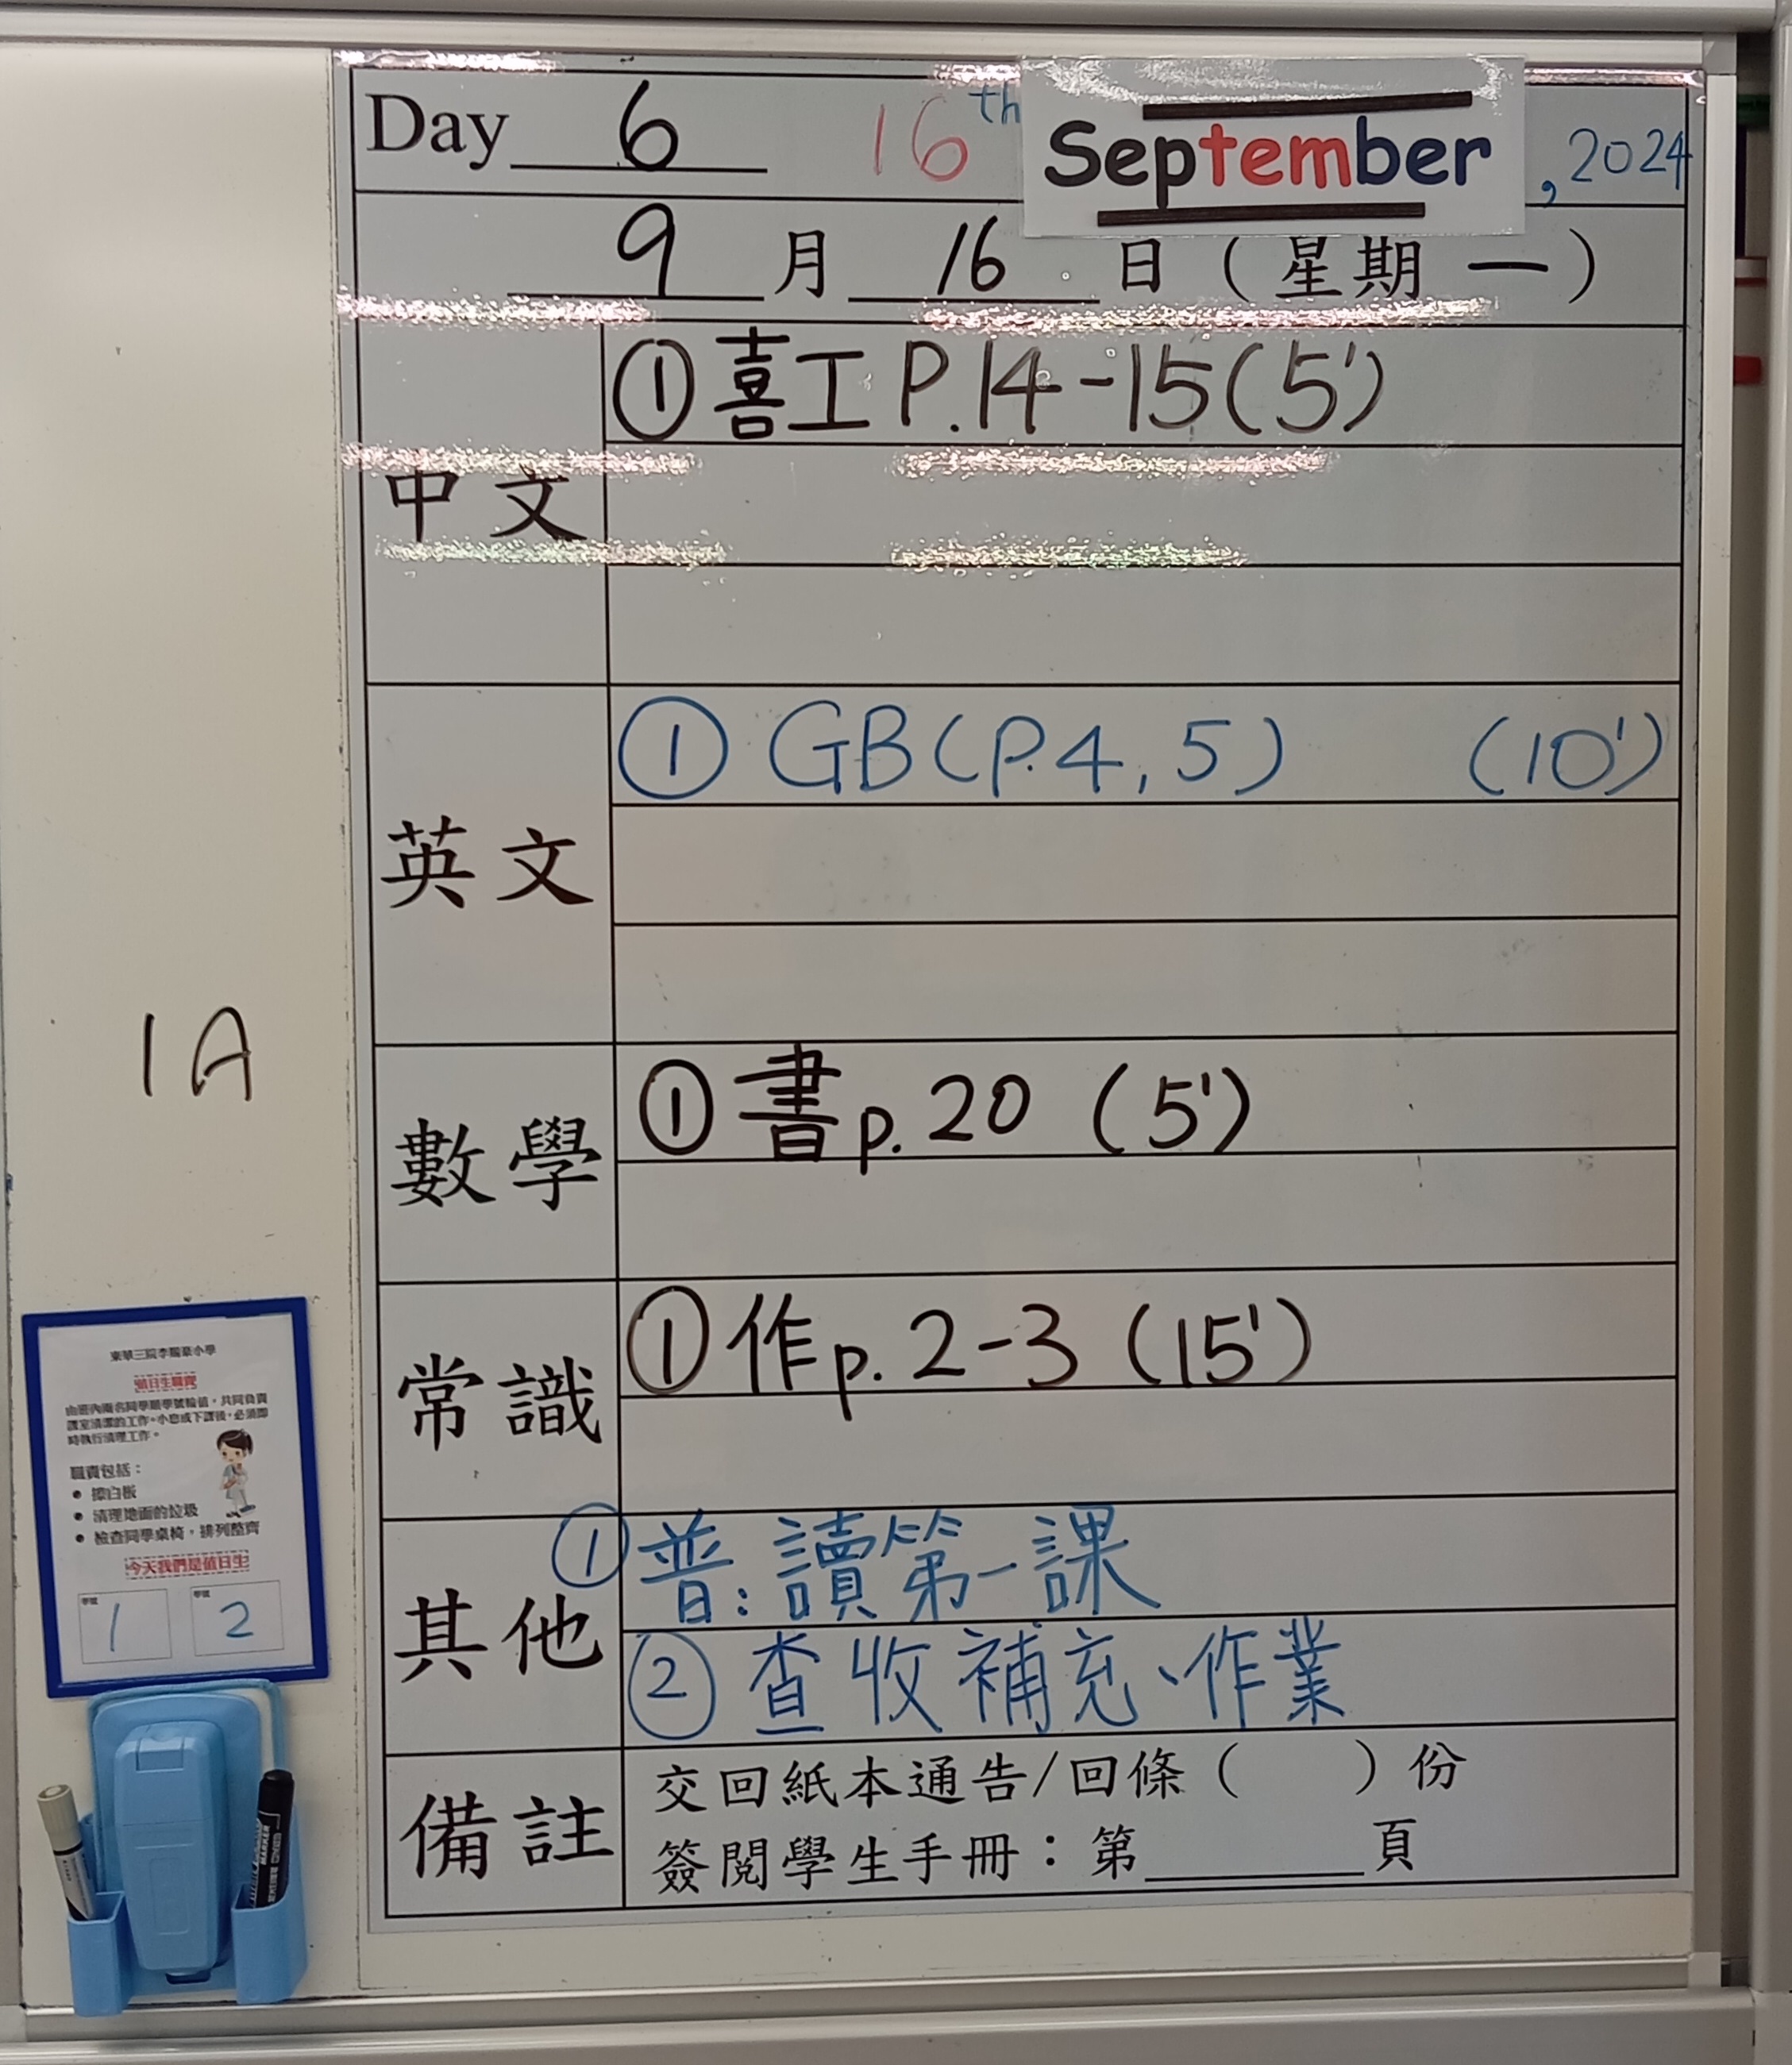 Day 6 16th September, 2024
9 月 16 日 ( 星期 一 )
中文
① 喜工 P.14-15 (5')
英文
① GB (P.4, 5) (10')
數學
① 書 p. 20 (5')
常識
① 作 p. 2-3 (15')
其他
① 普:讀第一課
② 查收補充、作業
備註
交回紙本通告/回條 ( ) 份
簽閱學生手冊:第______頁
1A
東華三院李賜豪小學
值日生職責
由班內兩名同學順學號輪值,共同負責
課室清潔的工作。小息或下課後,必須即
時執行清理工作。
職責包括:
• 擦白板
• 清理地面的垃圾
• 檢查同學桌椅,排列整齊
今天我們是值日生
學號 學號
1 2
MARKER